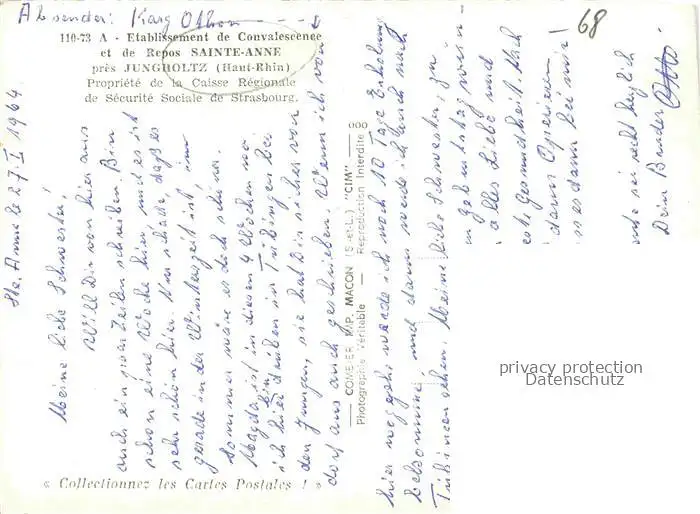 Absender: Karg Othon
68
110-73 A - Etablissement de Convalescence
et de Repos SAINTE-ANNE
près JUNGHOLTZ (Haut-Rhin)
Propriété de la Caisse Régionale
de Sécurité Sociale de Strasbourg.
Ste. Anne le 27. I 1964
Meine liebe Schwester!
Will Dir von hier aus
auch ein paar Zeilen schreiben. Bin
schon eine Woche hier und es ist
sehr schön hier. Nur schade, daß es
gerade in der Winterzeit ist, im
Sommer wäre es doch schöner.
Magda ist in diesen 4 Wochen wo
ich hier bin draußen in Tübingen bei
den Jungen, sie hat Dir sicher von
dort aus auch geschrieben. Wenn ich von
hier weggehe werde ich noch 10 Tage Erholung
bekommen, und dann werde ich auch nach
Tübingen gehen. Meine liebe Schwester, zu
alles Liebe und
Gesundheit. Auch
dann
es dann bei mir!
und sei recht herzlich
Dein Bruder Otto.
COMBIER IMP. MACON (S.-et-L.) "CIM"
Photographie Véritable - Reproduction Interdite
« Collectionnez les Cartes Postales ! »
privacy protection
Datenschutz